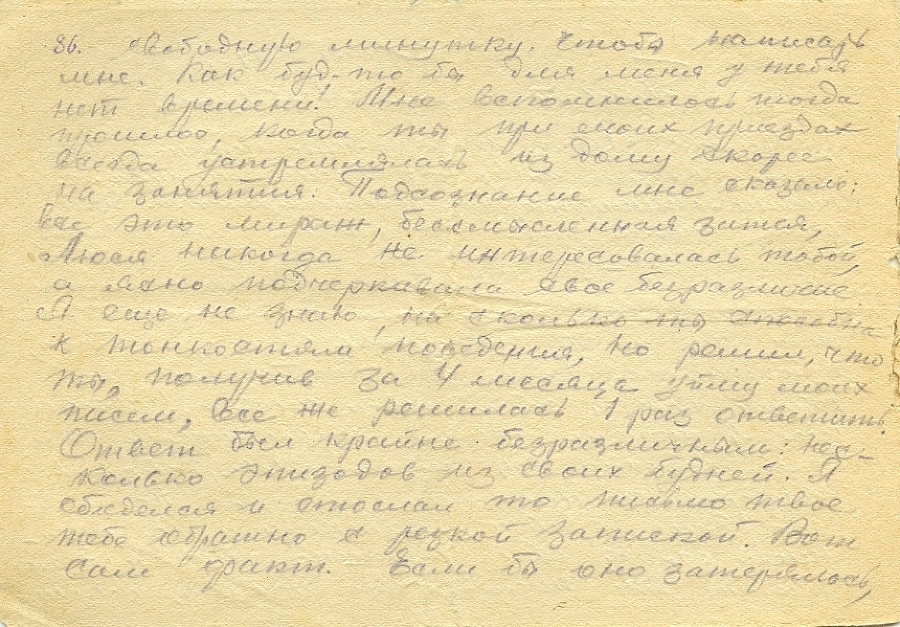 36. свободную минутку. чтобы написать
мне. Как буд-то бы для меня у тебя
нет времени! Мне вспомнилось тогда
прошлое, когда ты при моих приездах
всегда устремлялась из дому скорее
на занятия. Подсознание мне сказало:
все это мираж, бессмысленная затея,
Люся никогда не интересовалась тобой,
а явно подчеркивала свое безразличие
Я еще не знаю, на сколько ты способна
к тонкостям поведения, но решил, что
ты, получив за 4 месяца уйму моих
писем, все же решилась 1 раз ответить.
Ответ был крайне безразличным: нес-
колько эпизодов из своих будней. Я
обиделся и отослал то письмо твое
тебе обратно с резкой запиской. Вот
сам факт. Если бы оно затерялось,